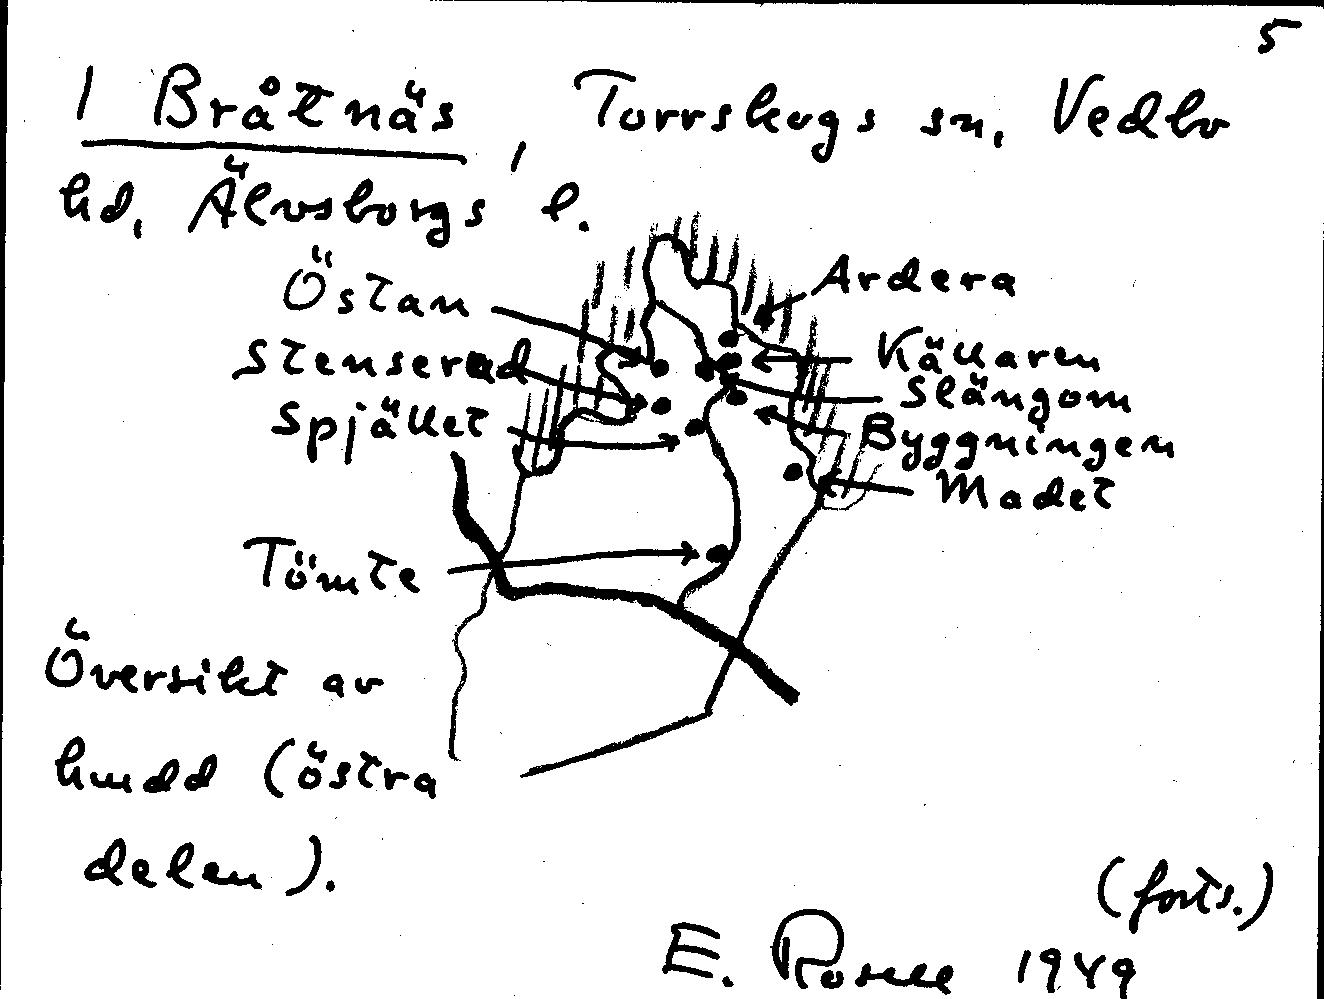 5
1 Bråtnäs, Torrskogs sn, Vedbo
hd, Älvsborgs l.
Östan
Ardera
Stenserud
Källaren
Slängom
Spjället
Byggningen
Madet
Tömte
Översikt av
hmdd (östra
delen).
(forts.)
E. Rosell 1949